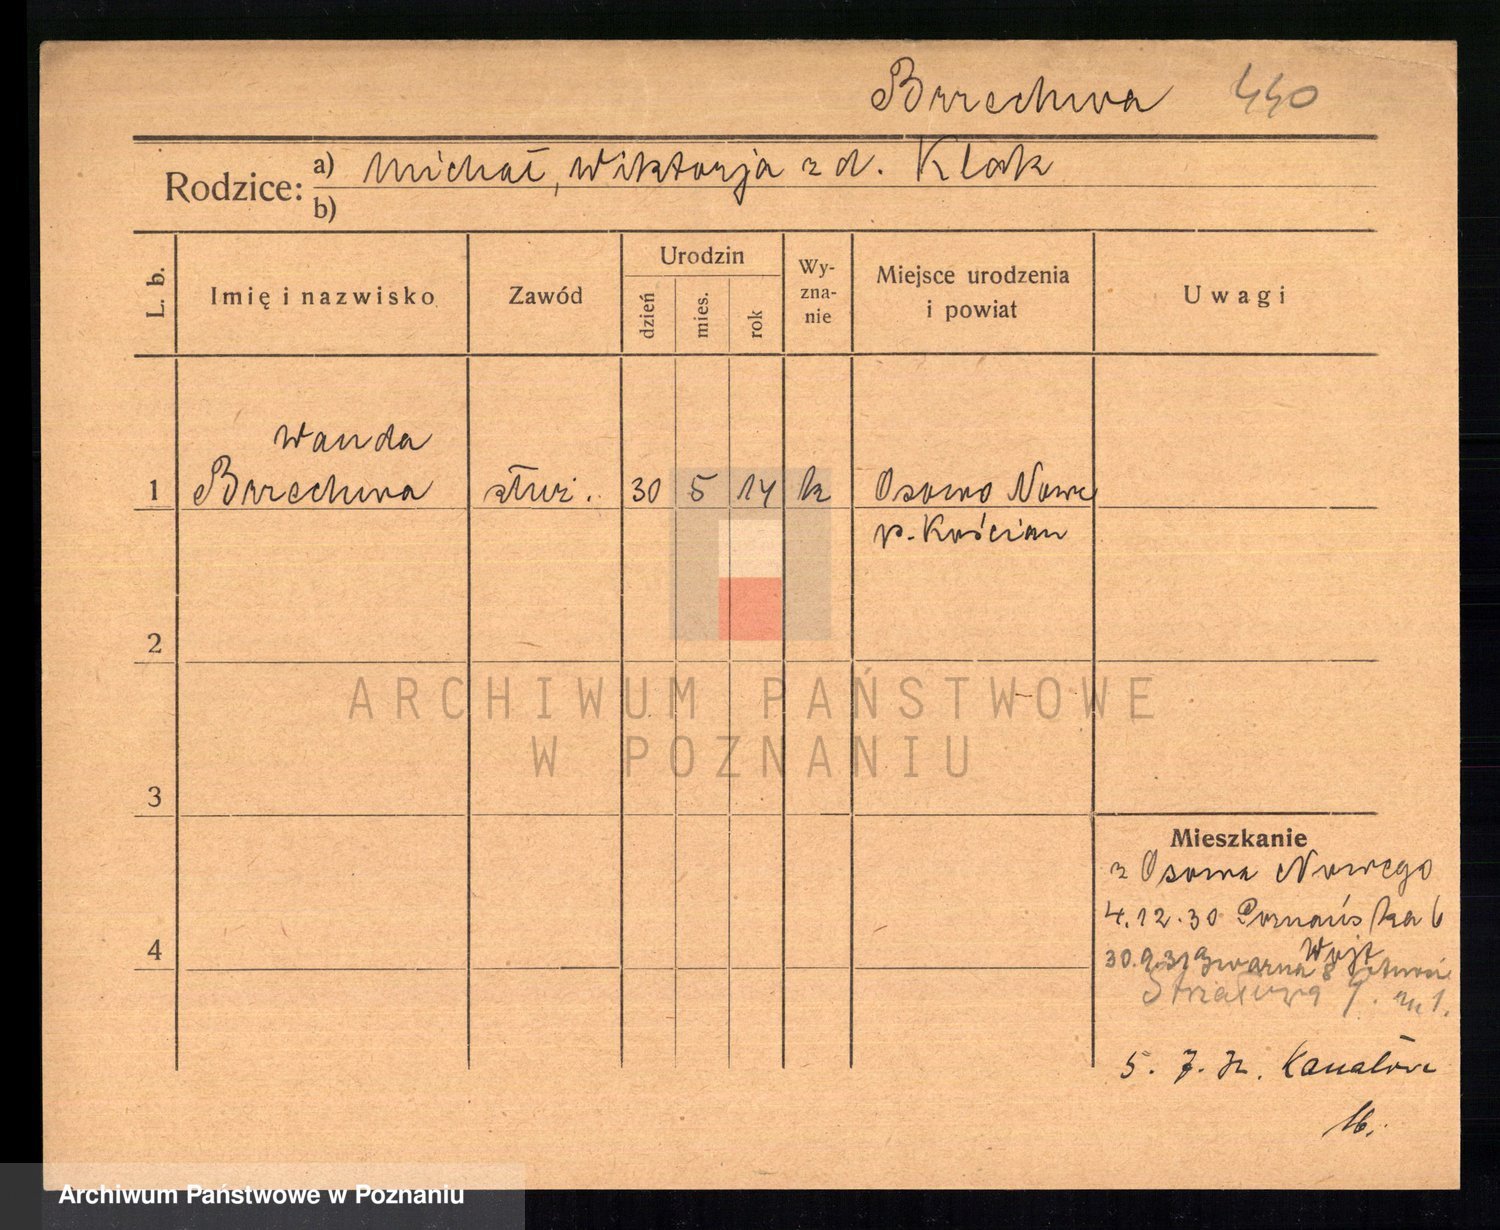 Brzechwa 440
Rodzice: a) Michał, Wiktorja z d. Klak
b)
L. b. Imię i nazwisko Zawód Urodzin dzień mies. rok Wy-zna-nie Miejsce urodzenia i powiat Uwagi
Wanda
1 Brzechwa służ. 30 5 14 k Osowo Nowe
p. Kościan
2
ARCHIWUM PAŃSTWOWE
W POZNANIU
3
Mieszkanie
z Osowa Nowego
4.12.30 Poznańska 6
4
30.9.31
5. 7. 32. Kanałowa
16.
Archiwum Państwowe w Poznaniu